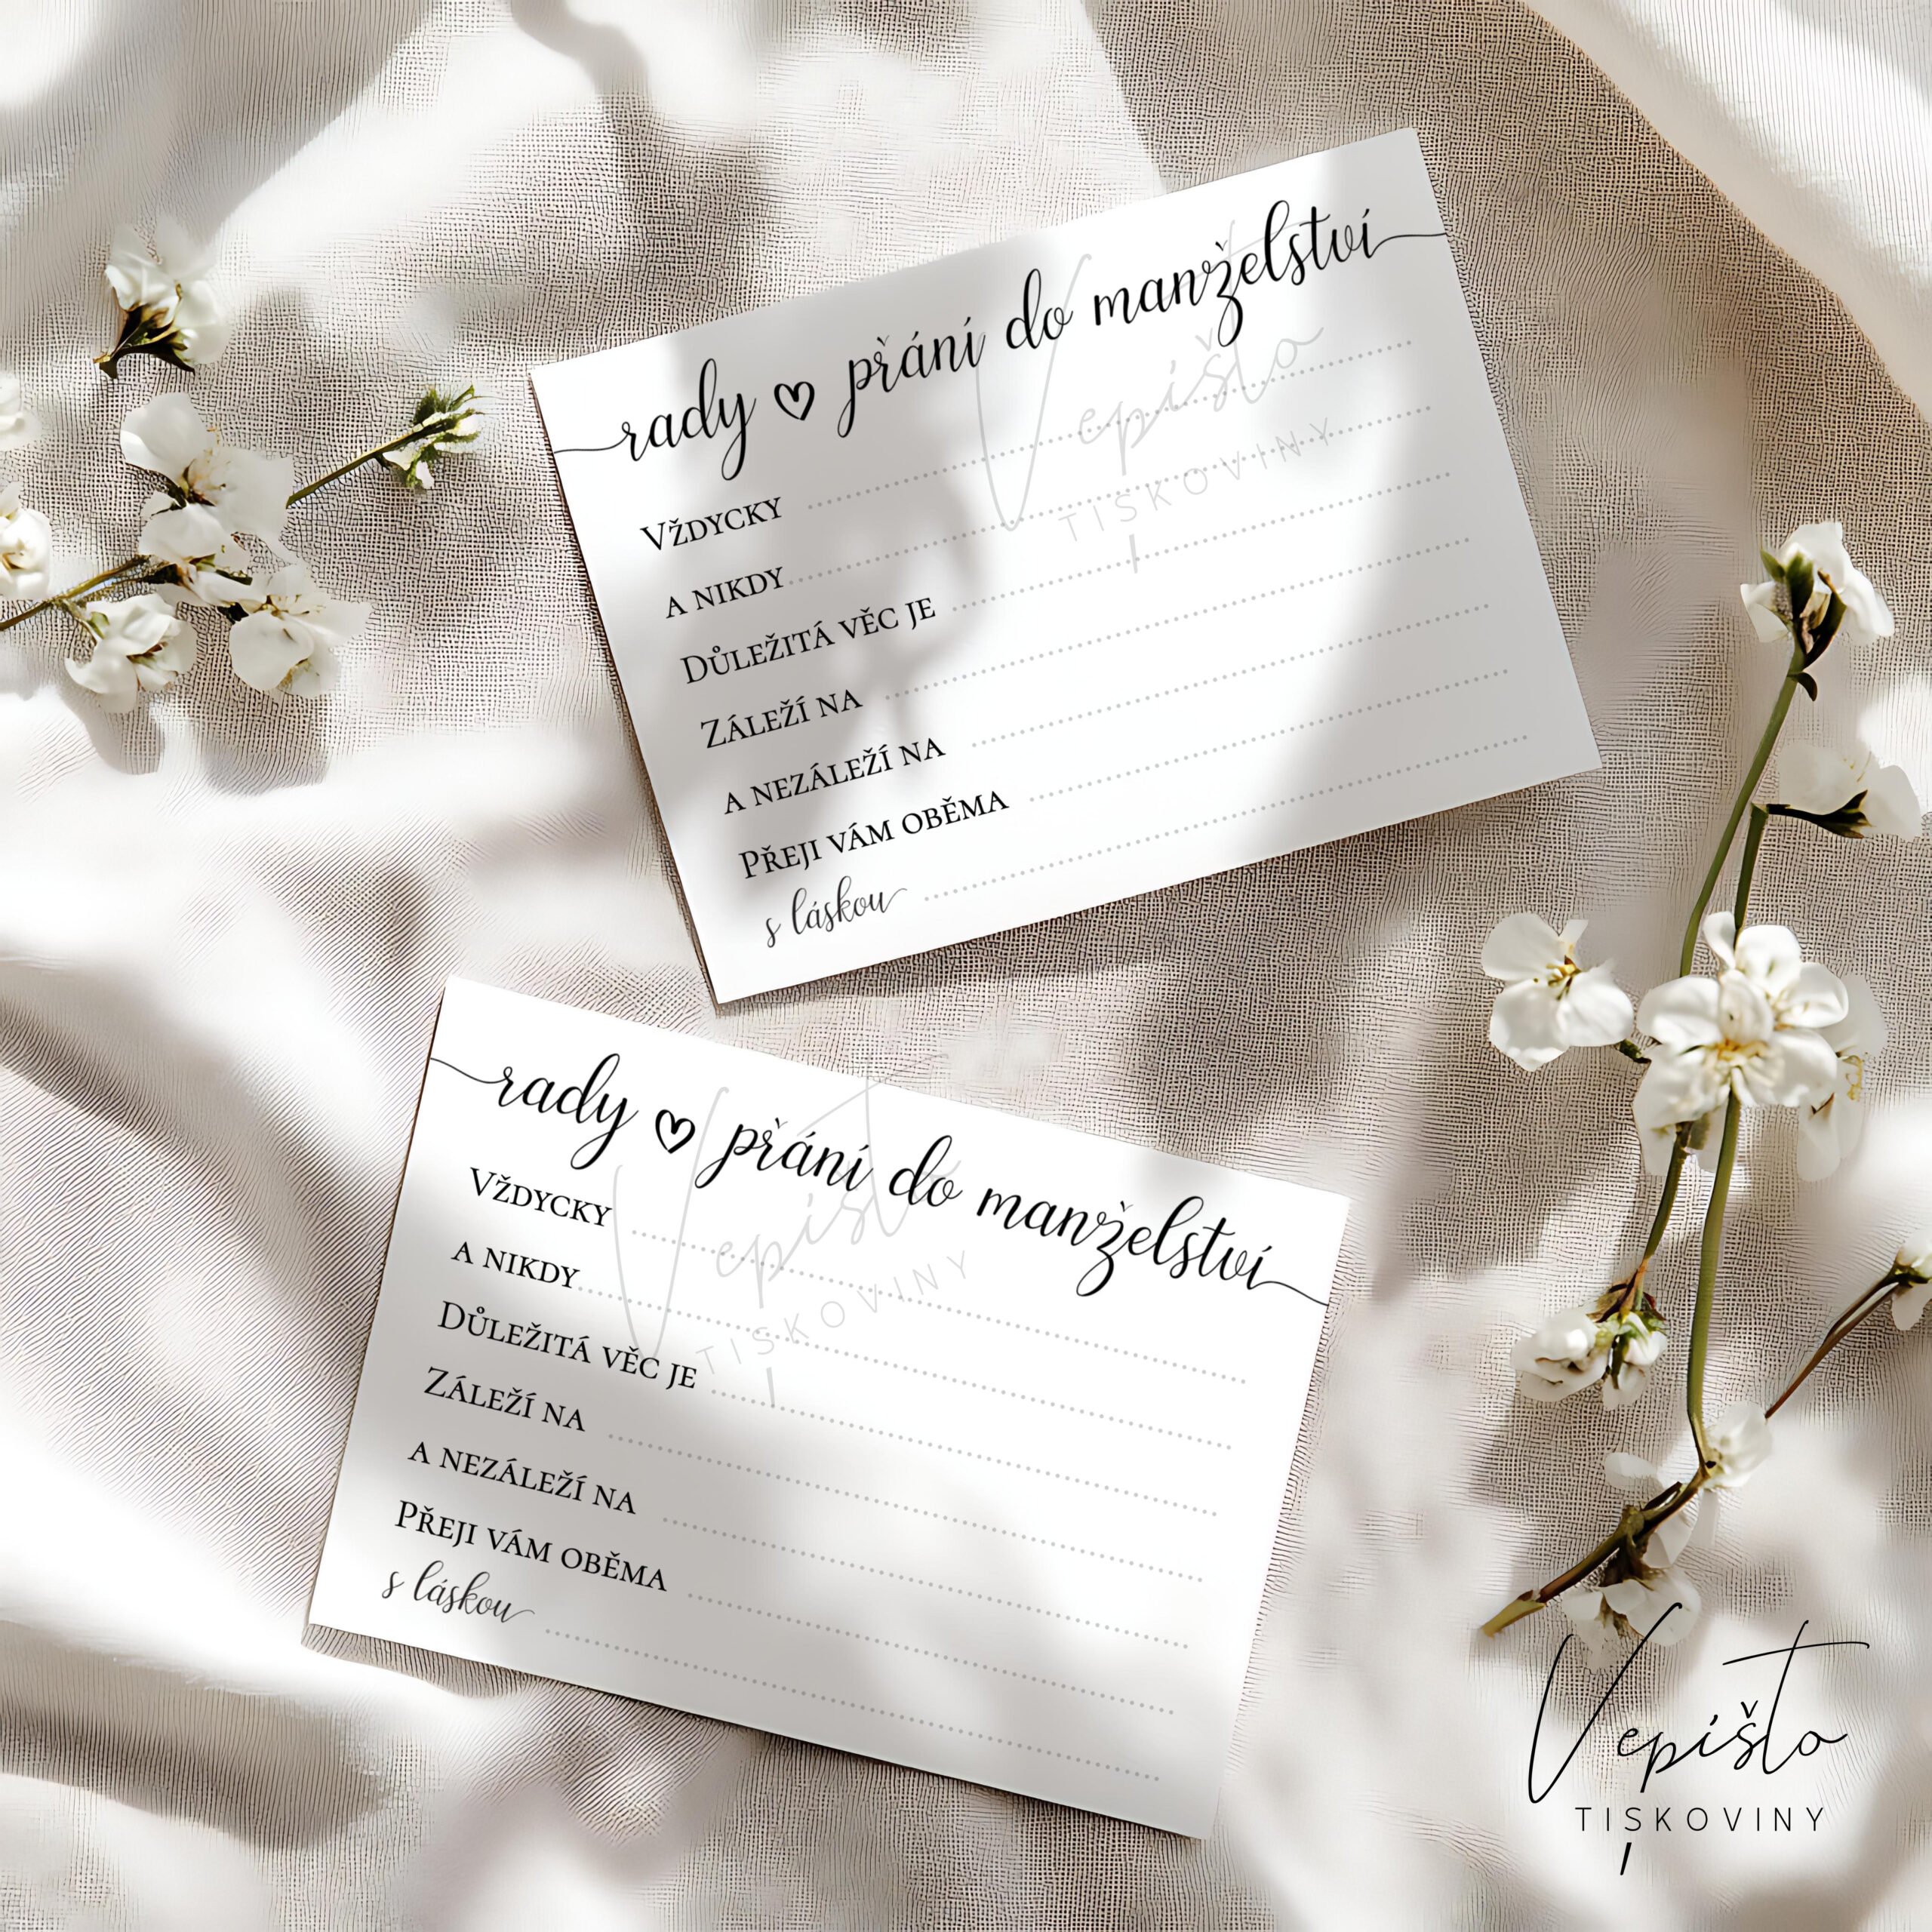 rady ♡ přání do manželství
Vždycky
a nikdy
Důležitá věc je
Záleží na
a nezáleží na
Přeji vám oběma
s láskou
Vepišto
TISKOVINY
rady ♡ přání do manželství
Vždycky
a nikdy
Důležitá věc je
Záleží na
a nezáleží na
Přeji vám oběma
s láskou
Vepišto
TISKOVINY
Vepišto
TISKOVINY